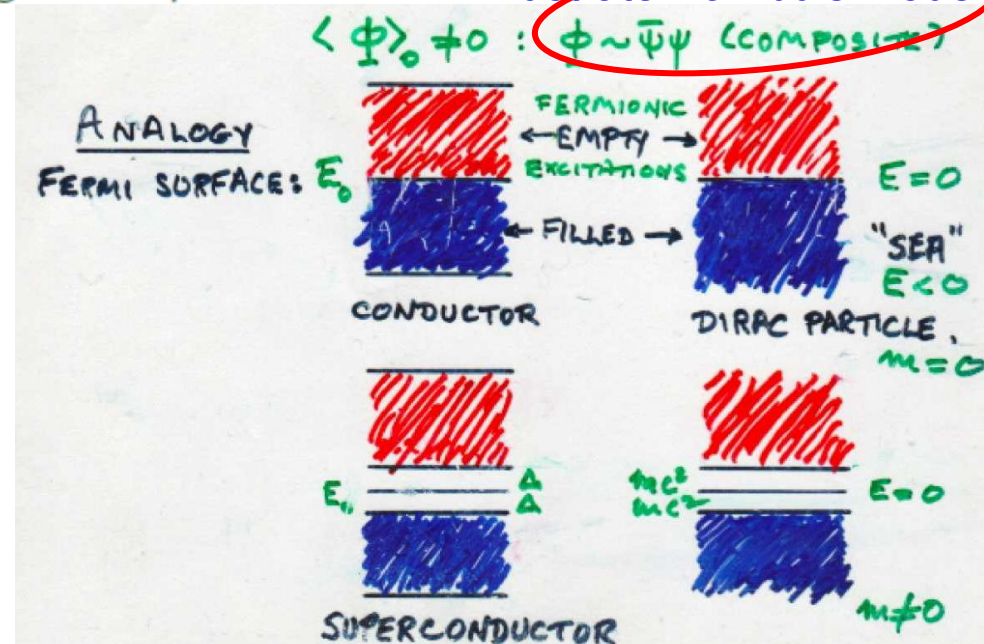 ⟨Φ⟩₀ ≠ 0 : φ ~ ψ̄ψ (COMPOSITE)
ANALOGY
FERMI SURFACE: E₀
FERMIONIC
← EMPTY →
EXCITATIONS
E=0
← FILLED →
"SEA"
E<0
CONDUCTOR
DIRAC PARTICLE.
m=0
E₀
Δ
Δ
mc²
mc²
E=0
m≠0
SUPERCONDUCTOR